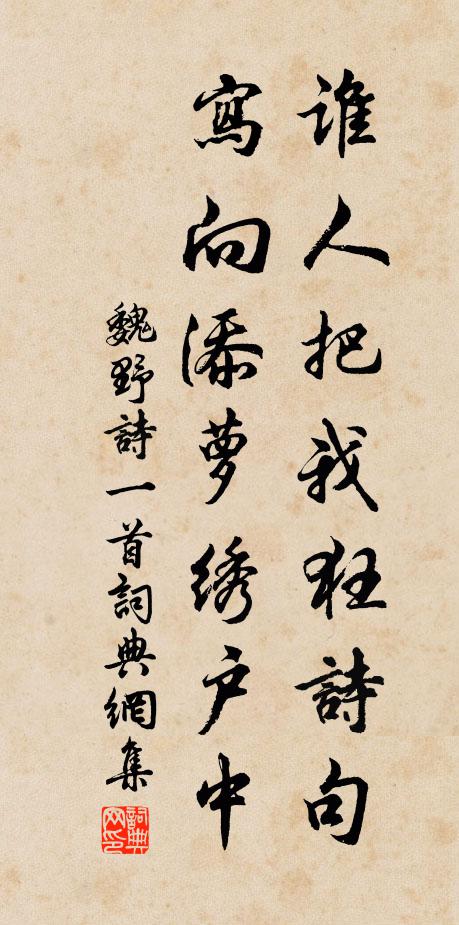 誰人把我狂詩句
寫向添夢綉户中
魏野詩一首詞典網集
詞典
网印